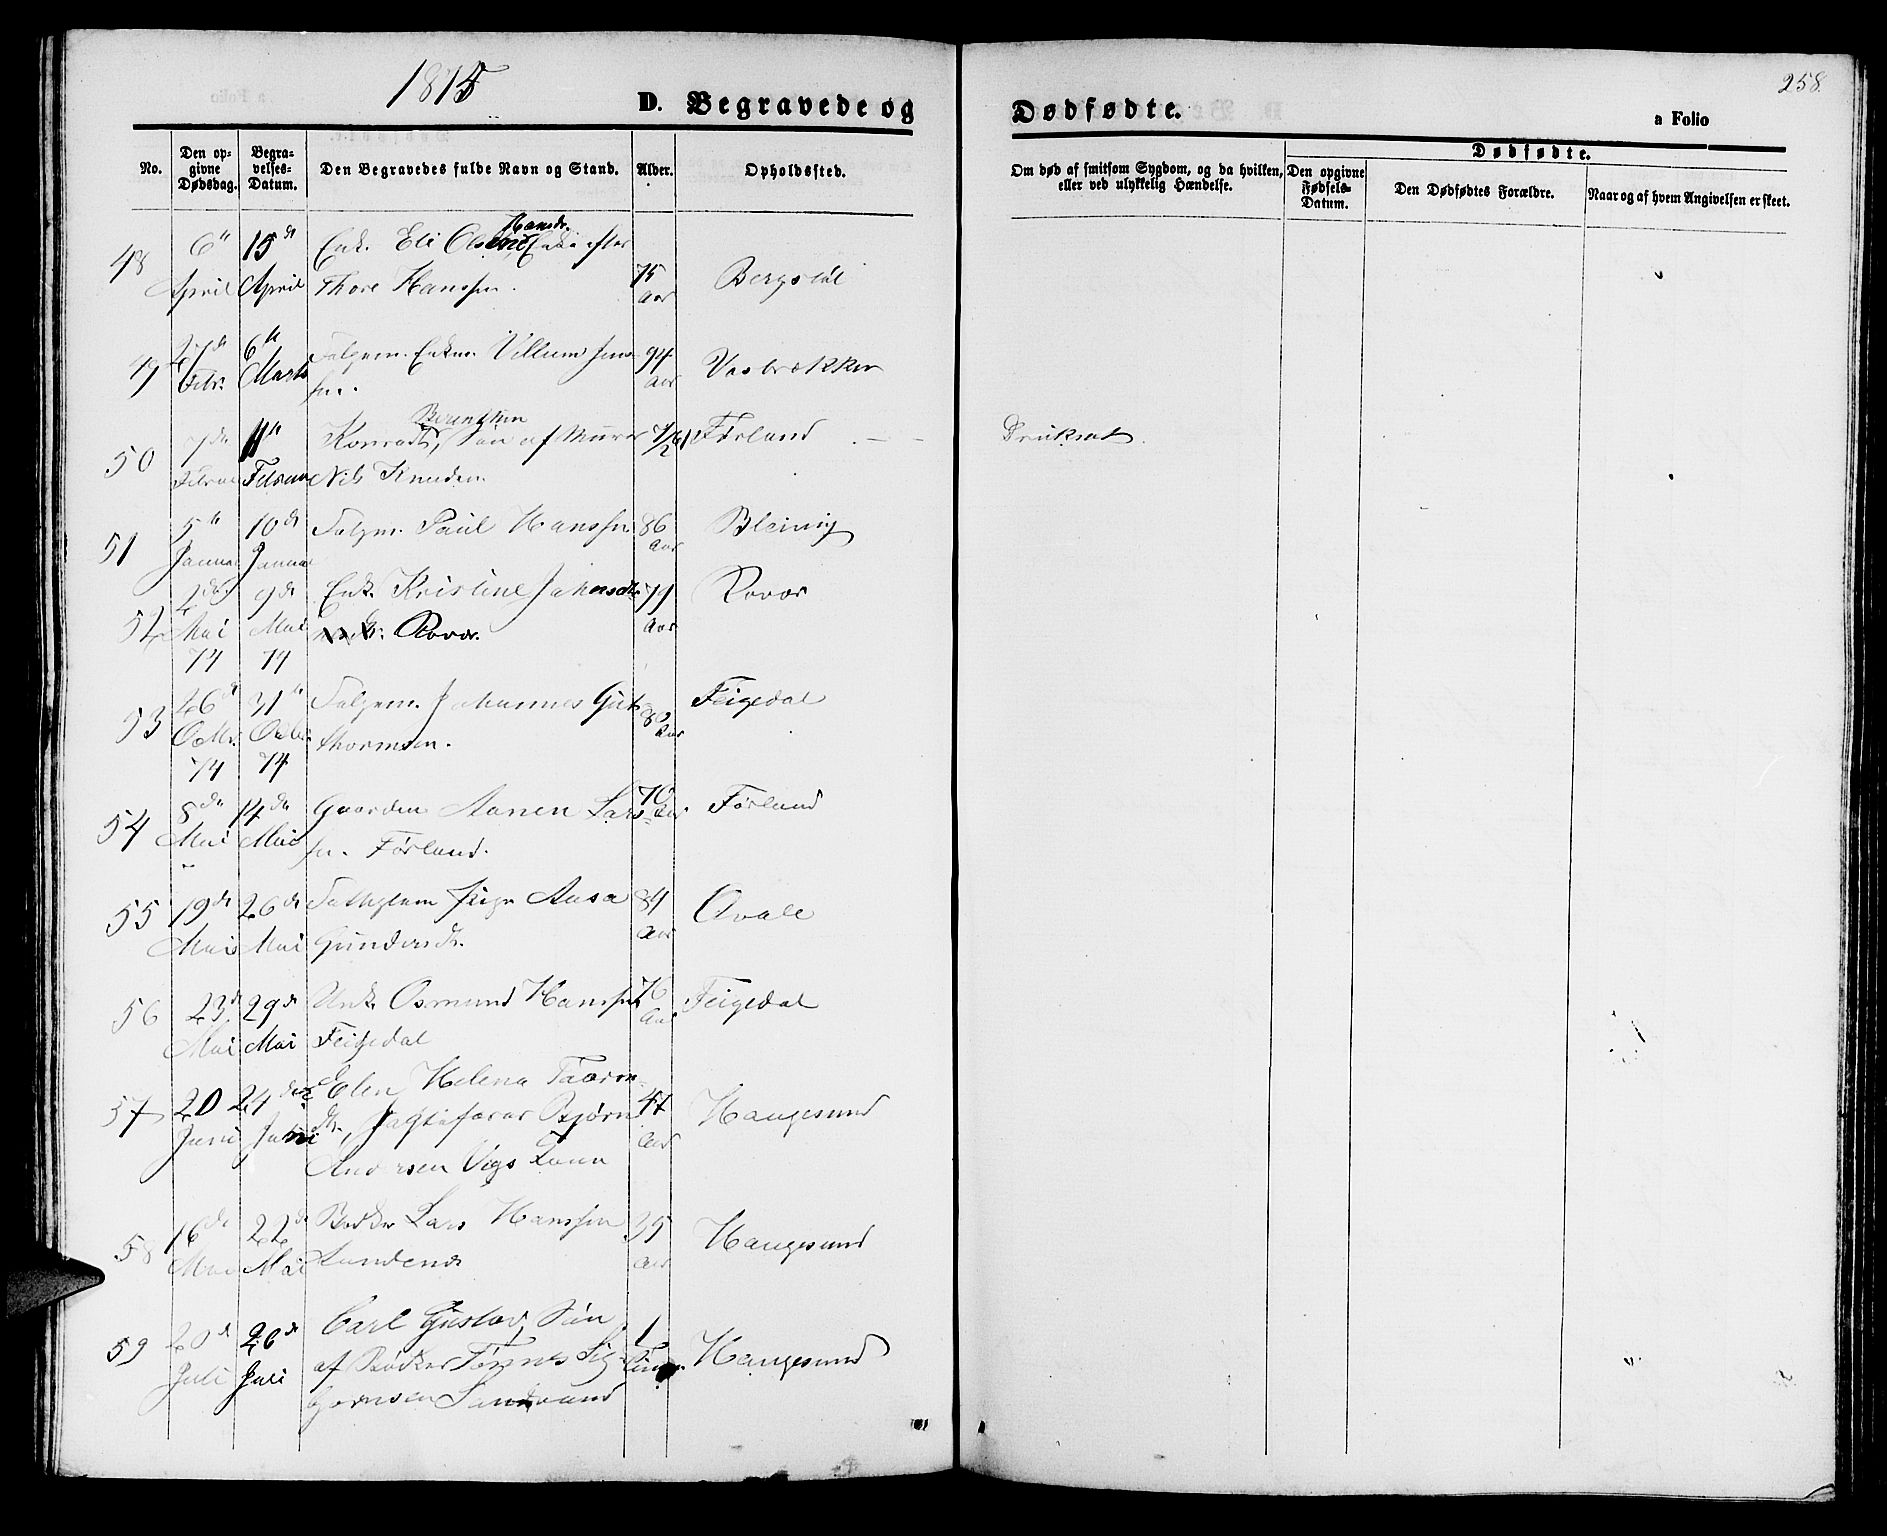 1875
D. Begravede og
Dødfødte.
258.
a Folio
No.
Den op-
givne
Dødsdag.
Begra-
velses-
Datum.
Den Begravedes fulde Navn og Stand.
Alder.
Opholdssted.
Om død af smitsom Sygdom, og da hvilken,
eller ved ulykkelig Hændelse.
Dødfødte.
Den opgivne
Fødsels-
Datum.
Den Dødfødtes Forældre.
Naar og af hvem Angivelsen er skeet.
48
6te
April
15de
April
Hansdr.
Enk. Eli Enke efter
Thore Hanssen.
75
Aar
Bergstøl
49
27de
Febr.
6te
Marts
Folgem. Enkem. Villum Jens-
sen.
94
Aar
Vasbrækken
50
7de
Februar
11te
Februar
Berentsen
Konrad, Søn af Murer
Nils Knudsen
7/12
Førland
Druknet.
51
5te
Januar
10de
Januar
Folgm. Paul Hanssen
86
Aar
Bleivig
52
2den
Mai
74
9de
Mai
74
Enk. Kristine Johnsdtr.
Røvær.
79
Aar
Rovær
53
26de
Octbr.
74
31te
Octbr.
74
Folgem. Johannes Gut-
thormsen.
80
Aar
Feigedal
54
8de
Mai
14de
Mai
Gaardm. Aanen Lars-
sen. Førland.
70
Aar
Førland
55
19de
Mai
26de
Mai
Fattiglem Pige Aasa
Gundersdtr.
84
Aar
Qvale
56
23de
Mai
29de
Mai
Unk. Osmund Hanssen
Feigedal
76
Aar
Feigedal
57
20
Juni
24de
Juni
Elen Helena
dtr., Jagtefører Bjørn
Andersen Vigs Kone
47
Aar
Haugesund
58
16de
Mai
22de
Mai
Bødker Lars Hanssen
35
Aar
Haugesund
59
20de
Juli
26de
Juli
Carl Gustav, Søn
af Bødker Tønnes Sig-
bjørnsen Sandvand
1
Haugesund